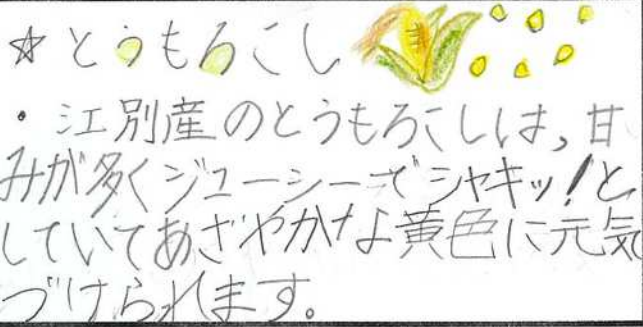 ☆とうもろこし
・江別産のとうもろこしは,甘
みが多くジューシーでシャキッ!と
していてあざやかな黄色に元気
づけられます。